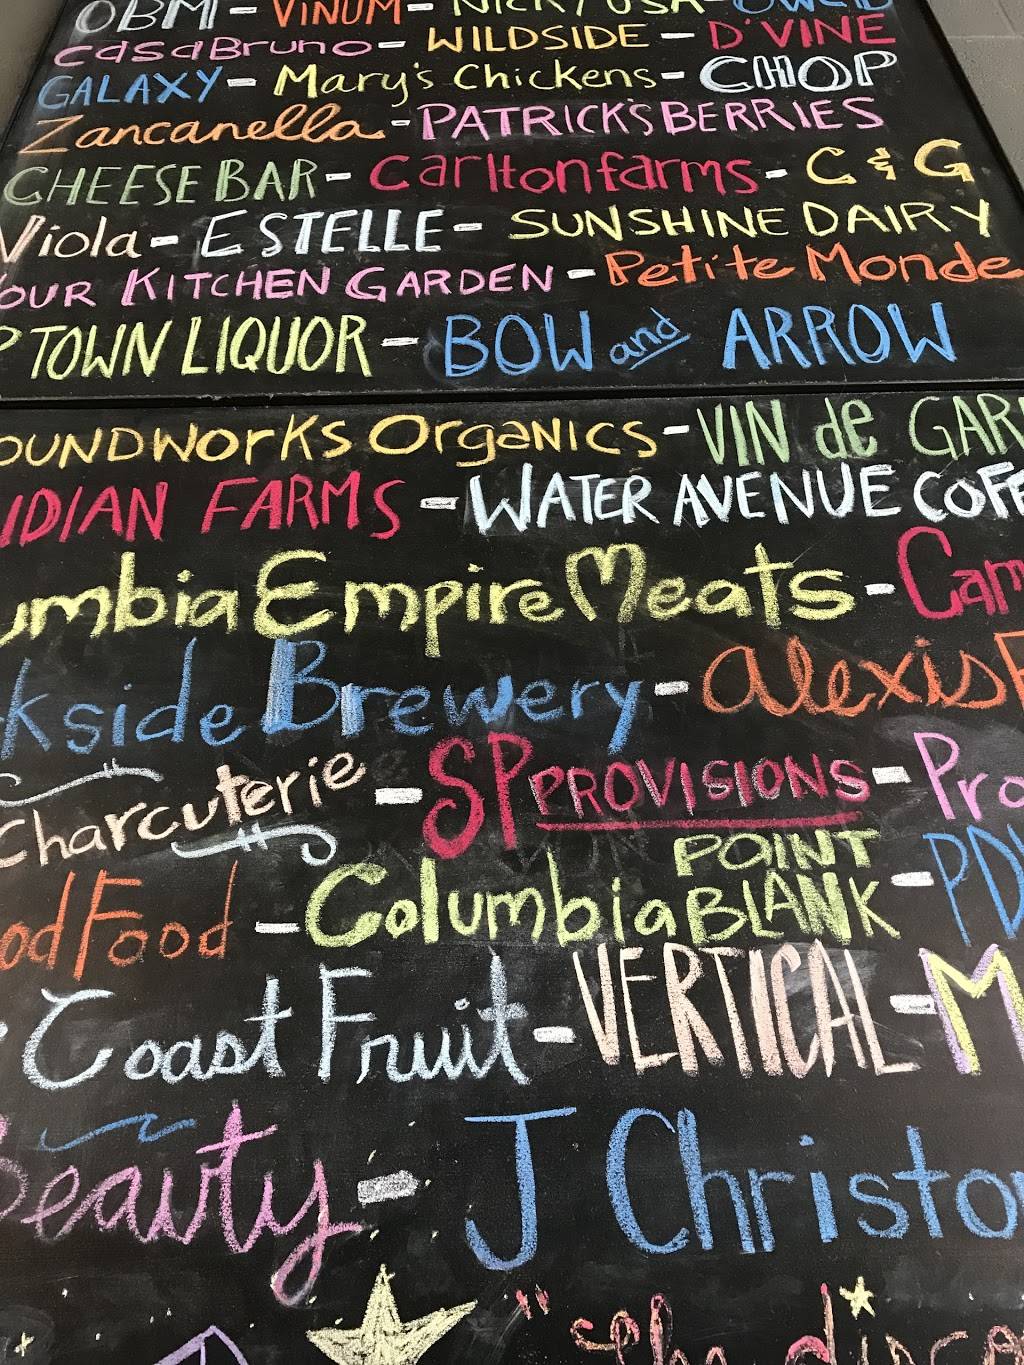 OBM - VINUM - NICKY USA -
casaBruno - WILDSIDE - D'VINE
GALAXY - Mary's Chickens - CHOP
Zancanella - PATRICK'S BERRIES
CHEESE BAR - Carltonfarms - C & G
Viola - ESTELLE - SUNSHINE DAIRY
OUR KITCHEN GARDEN - Petite Monde
P TOWN LIQUOR - BOW and ARROW
OUNDWORKS OrgaNICS - VIN de GAR
IDIAN FARMS - WATER AVENUE COFF
umbia Empire Meats - Cam
kside Brewery - alexis F
Charcuterie - SP PROVISIONS - Pro
POINT
odFood - Columbia BLANK - PD
Coast Fruit - VERTICAL - M
Beauty - J Christo
"the disco